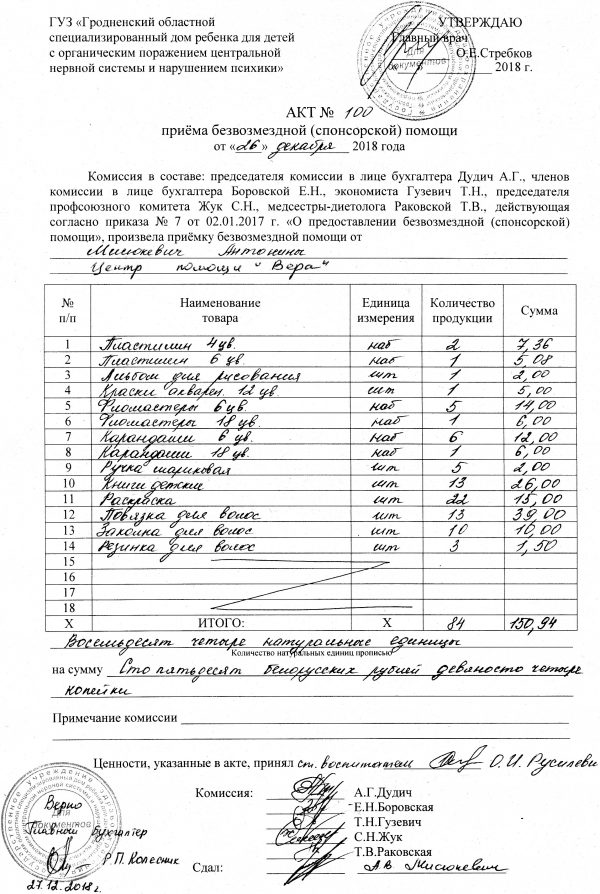 ГУЗ «Гродненский областной
специализированный дом ребенка для детей
с органическим поражением центральной
нервной системы и нарушением психики»
УТВЕРЖДАЮ
Главный врач
О.Е.Стребков
2018 г.
для
документов
АКТ № 100
приёма безвозмездной (спонсорской) помощи
от «26» декабря 2018 года
Комиссия в составе: председателя комиссии в лице бухгалтера Дудич А.Г., членов
комиссии в лице бухгалтера Боровской Е.Н., экономиста Гузевич Т.Н., председателя
профсоюзного комитета Жук С.Н., медсестры-диетолога Раковской Т.В., действующая
согласно приказа № 7 от 02.01.2017 г. «О предоставлении безвозмездной (спонсорской)
помощи», произвела приёмку безвозмездной помощи от
Мисюкевич Антонины
Центр помощи "Вера"
№ п/п Наименование товара Единица измерения Количество продукции Сумма
1 Пластилин 4 цв. наб 2 7,36
2 Пластилин 6 цв. наб 1 5,08
3 Альбом для рисования шт 1 2,00
4 Краски акварел. 12 цв. шт 1 5,00
5 Фломастеры 6 цв. наб 5 14,00
6 Фломастеры 18 цв. наб 1 6,00
7 Карандаши 6 цв. наб 6 12,00
8 Карандаши 18 цв. наб 1 6,00
9 Ручка шариковая шт 5 2,00
10 Книги детские шт 13 26,00
11 Раскраска шт 22 15,00
12 Повязка для волос шт 13 39,00
13 Заколка для волос шт 10 10,00
14 Резинка для волос шт 3 1,50
15
16
17
18
X ИТОГО: X 84 150,94
Восемьдесят четыре натуральные единицы
Количество натуральных единиц прописью
на сумму Сто пятьдесят белорусских рублей девяносто четыре
копейки
Примечание комиссии
Ценности, указанные в акте, принял ст. воспитатель О.И. Русилевич
Комиссия: А.Г.Дудич
Е.Н.Боровская
Т.Н.Гузевич
С.Н.Жук
Т.В.Раковская
Сдал: А.В. Мисюкевич
Верно
для
документов
Главный бухгалтер
Р.П. Колесник
27.12.2018 г.